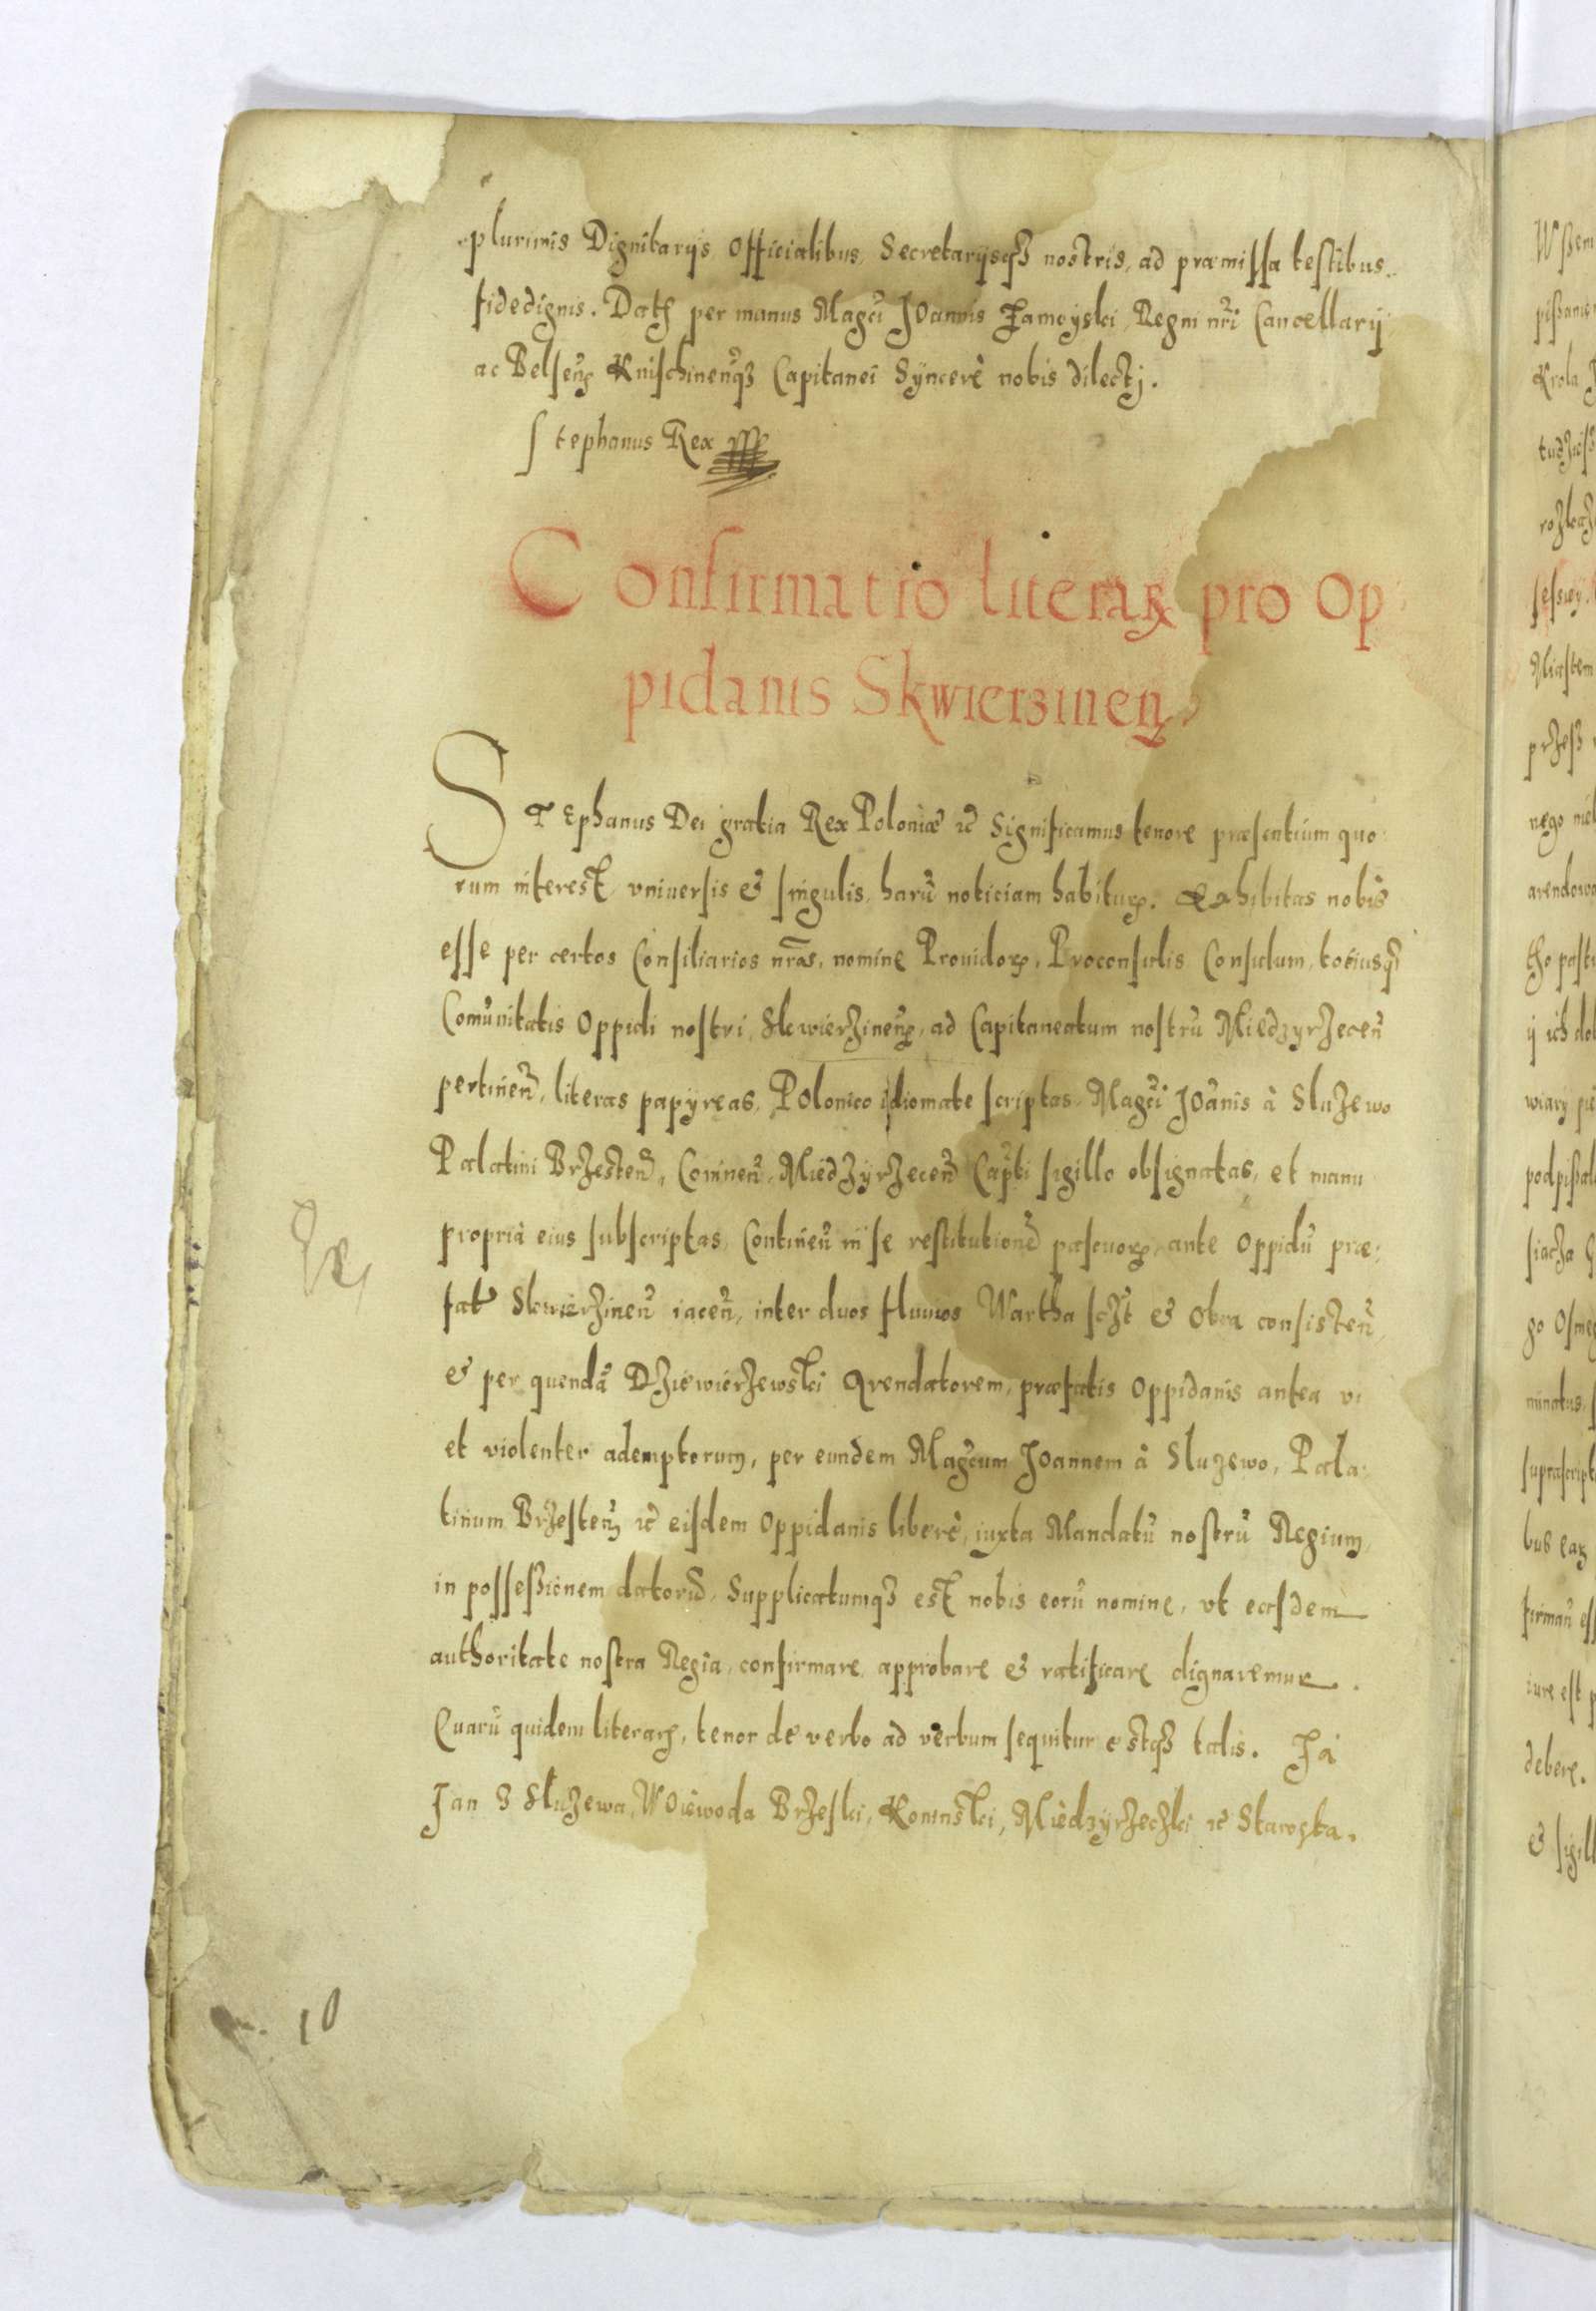 plurimis Dignitarijs Officialibus, Secretarijsqꝫ nostris, ad præmissa testibus
fidedignis. Datꝭ per manus Magci Joannis Zamoyski, Regni nri Cancellarij
ac Belsenꝭ Knischinenqꝫ Capitanei Syncerè nobis dilectj.
Stephanus Rex
Confirmatio literaꝝ pro Op
pidanis Skwierzinenꝭ
STEphanus Dei gratia Rex Poloniæ ꝛc Significamus tenore præsentium quo
rum interest, vniuersis & singulis, harũ noticiam habituꝝ. Exhibitas nobis
esse per certos Consiliarios nros, nomine Prouidoꝝ, Proconsulis Consulum, totiusqꝫ
Comũnitatis Oppidi nostri, Skwierzinenꝭ, ad Capitaneatum nostrũ Miedzyrzecen̄
pertinen̄, literas papyreas, Polonico idiomate scriptas, Magci Joãnis à Sluzewo
Palatini Brzesten̄, Coninen̄, Miedzyrzecen̄ Capti sigillo obsignatas, et manu
propria eius subscriptas, Continen̄ in se restitutionẽ pascuoꝝ, ante Oppidũ præ:
fat Skwierzinen̄ iacen̄, inter duos fluuios Wartha sczt & Obra consisten̄,
& per quendã Dziewierzewski Arendatorem, præfatis Oppidanis antea vi
et violenter ademptorum, per eundem Magcum Joannem à Sluzewo, Pala:
tinum Brzesten̄ ꝛc eisdem Oppidanis liberè, iuxta Mandatũ nostrũ Regium,
in possessionem datorũ, Supplicatumqꝫ est nobis eorũ nomine, vt easdem
authoritate nostra Regia, confirmare approbare & ratificare dignaremur.
Quarũ quidem literaꝝ, tenor de verbo ad verbum sequitur estqꝫ talis. Ja
Jan z Sluzewa, Woiewoda Brzeski, Koninski, Miedzyrzeczki ꝛc Starosta,
10